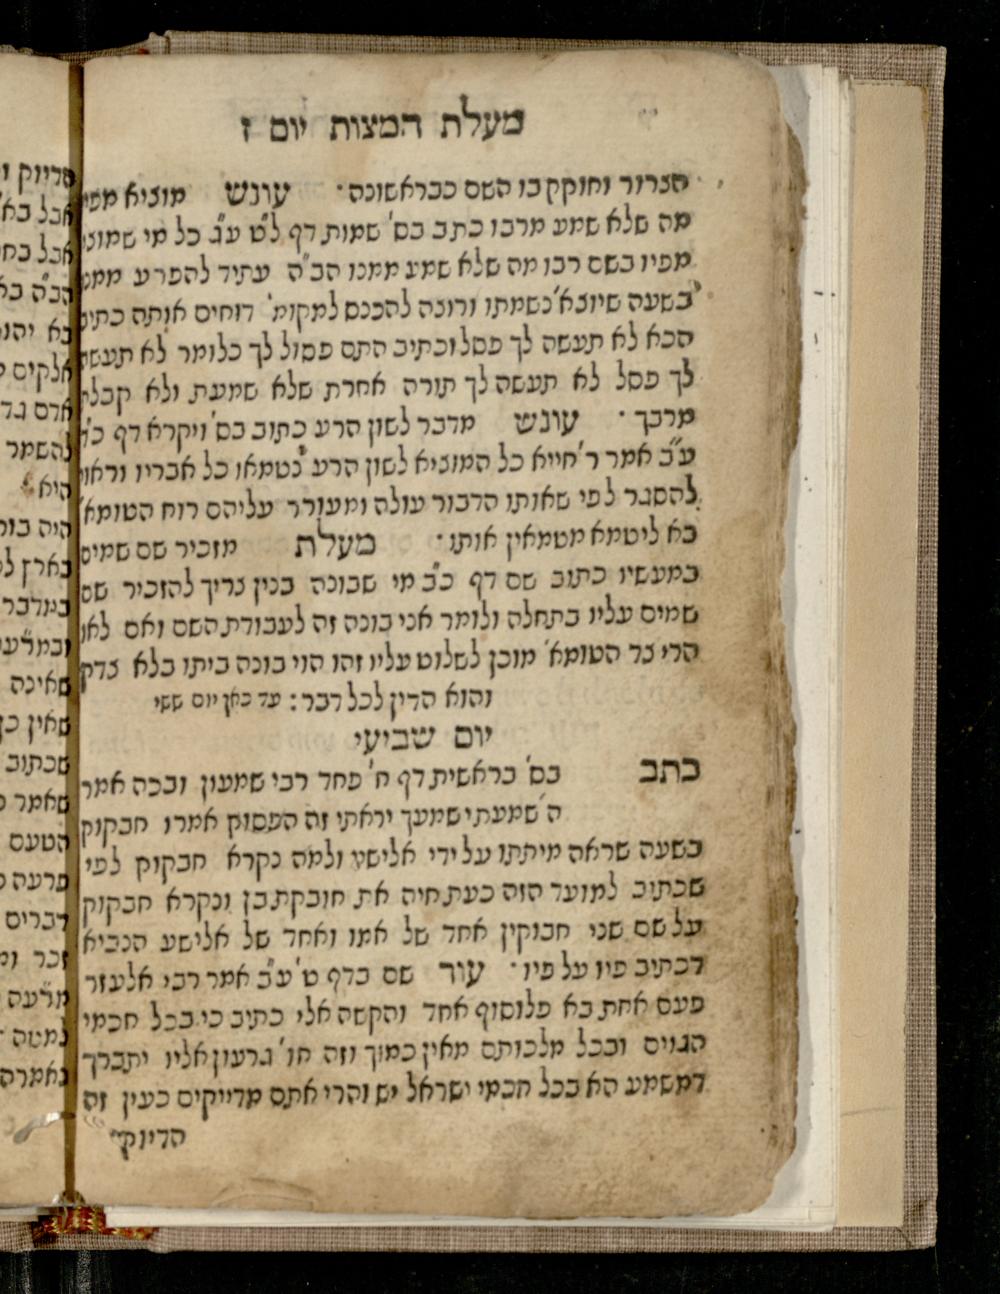 מעלת המצות יום ז
הצרור וחוקק בו השם כבראשונה · עונש מוציא מפיו
מה שלא שמע מרבו כתב בס' שמות דף ל"ט ע"ג כל מי שמוציא
מפיו בשם רבו מה שלא שמע ממנו הב"ה עתיד להפרע ממנו
בשעה שיוצא' נשמתו ורוצה להכנס למקומ' דוחים אותה כתיב
הכא לא תעשה לך פסל וכתיב התם פסול לך כלומר לא תעשה
לך פסל לא תעשה לך תורה אחרת שלא שמעת ולא קבלת
מרבך · עונש מדבר לשון הרע כתוב בס' ויקרא דף
ע"ב אמר ר' חייא כל המוציא לשון הרע נטמאו כל אבריו וראוי
להסגר לפי שאותו הדבור עולה ומעורר עליהם רוח הטומא'
בא ליטמא מטמאין אותו · מעלת מזכיר שם שמים
במעשיו כתוב שם דף כ"ב מי שבונה בנין צריך להזכיר שם
שמים עליו בתחלה ולומר אני בונה זה לעבודת השם ואם לאו
הרי צד הטומא' מוכן לשלוט עליו זהו הוי בונה ביתו בלא צדק
והוא הדין לכל דבר : עד כאן יום ששי
יום שביעי
כתב בס' בראשית דף ח' פחד רבי שמעון ובכה אמר
ה' שמעתי שמעך יראתי זה הפסוק אמרו חבקוק
בשעה שראה מיתתו על ידי אלישע ולמה נקרא חבקוק לפי
שכתוב למועד הזה כעת חיה את חובקת בן ונקרא חבקוק
על שם שני חבוקין אחד של אמו ואחד של אלישע הנביא
דכתיב פיו על פיו · עוד שם בדף ט' ע"ב אמר רבי אלעזר
פעם אחת בא פלוסוף אחד והקשה אלי כתיב כי בכל חכמי
הגוים ובכל מלכותם מאין כמוך וזה חו' גרעון אליו יתברך
דמשמע הא בכל חכמי ישראל יש והרי אתם מדייקים כעין זה
הדיוק